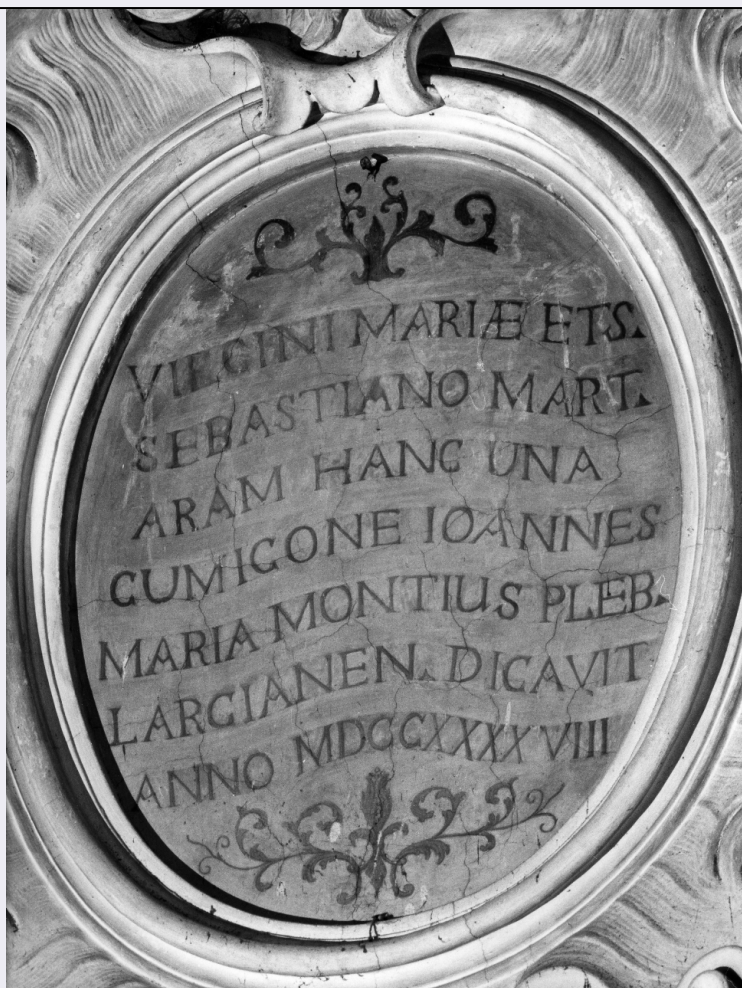 VIRGINI MARIÆ ET S.
SEBASTIANO MART.
ARAM HANC UNA
CUMICONE IOANNES
MARIA MONTIUS PLEB.
LARCIANEN. DICAVIT
ANNO MDCCXXXXVIII